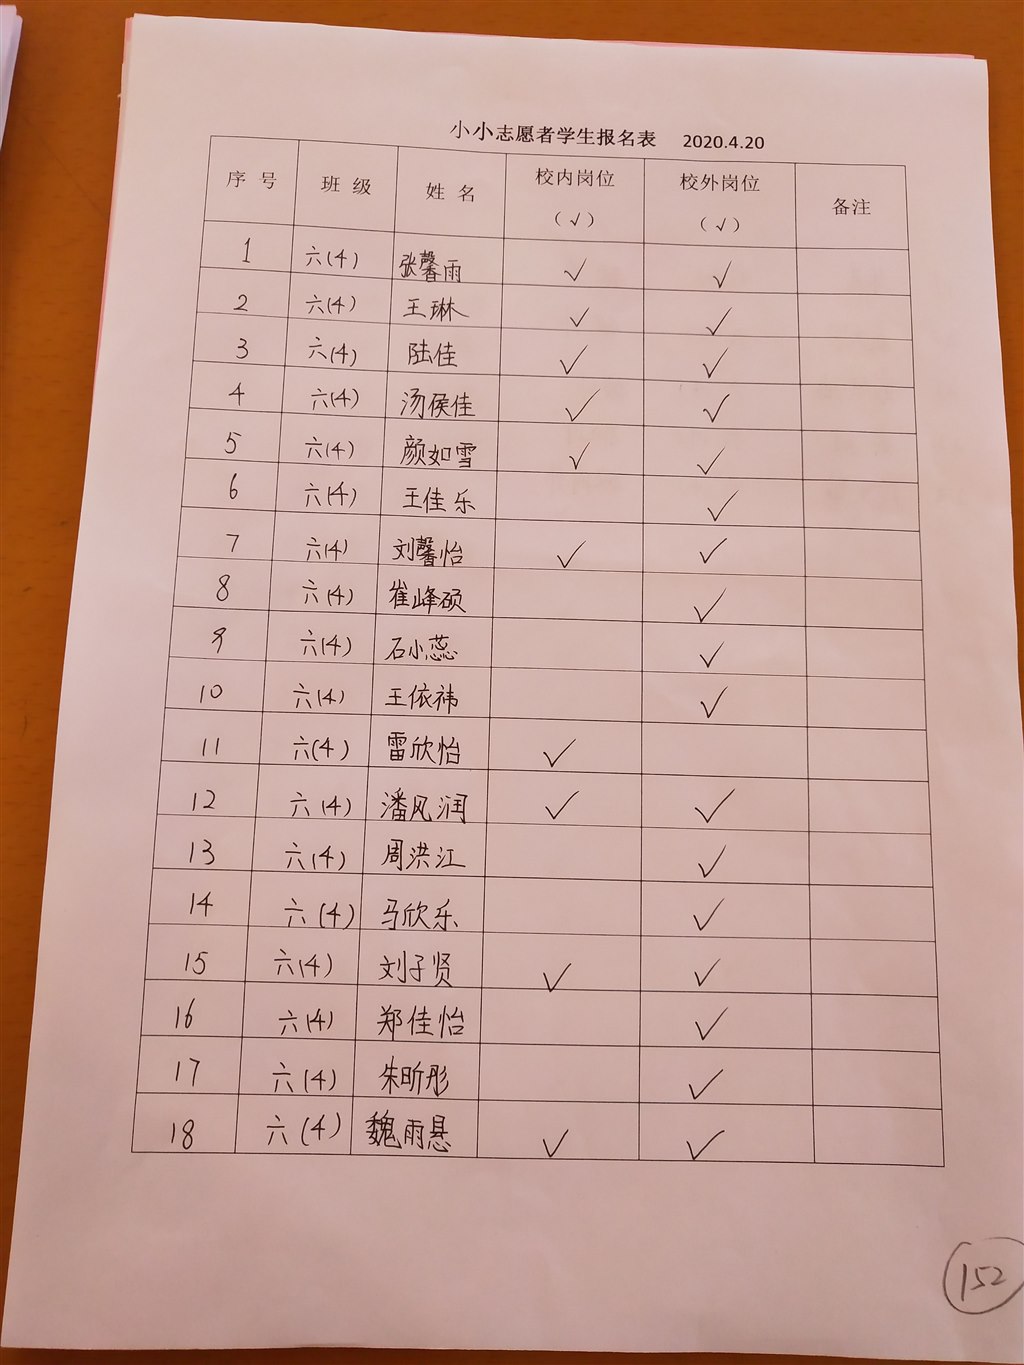 小小志愿者学生报名表 2020.4.20
序号 班级 姓名 校内岗位（√） 校外岗位（√） 备注
1 六(4) 张馨雨 √ √
2 六(4) 王琳 √ √
3 六(4) 陆佳 √ √
4 六(4) 汤侯佳 √ √
5 六(4) 颜如雪 √ √
6 六(4) 王佳乐 √
7 六(4) 刘馨怡 √ √
8 六(4) 崔峰硕 √
9 六(4) 石小蕊 √
10 六(4) 王依祎 √
11 六(4) 雷欣怡 √
12 六(4) 潘风润 √ √
13 六(4) 周洪江 √
14 六(4) 马欣乐 √
15 六(4) 刘子贤 √ √
16 六(4) 郑佳怡 √
17 六(4) 朱昕彤 √
18 六(4) 魏雨悬 √ √
152